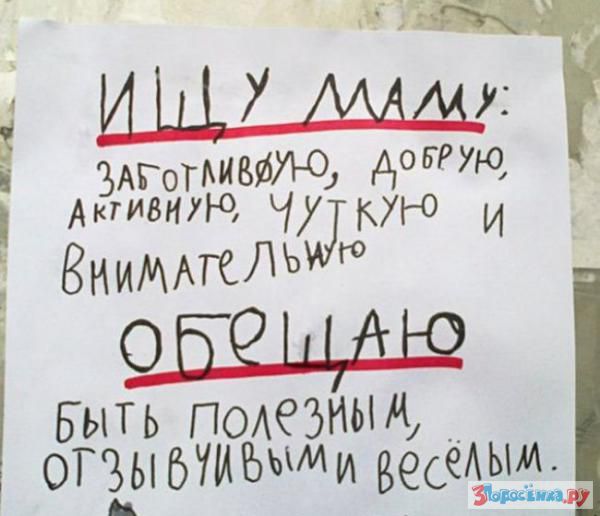 ИЩУ МАМУ:
ЗАБОТЛИВУЮ, ДОБРУЮ,
АКТИВНУЮ, ЧУТКУЮ И
ВНИМАТЕЛЬНУЮ
ОБЕЩАЮ
БЫТЬ ПОЛЕЗНЫМ,
ОТЗЫВЧИВЫМ И ВЕСЁЛЫМ.
3Поросёнка.ру